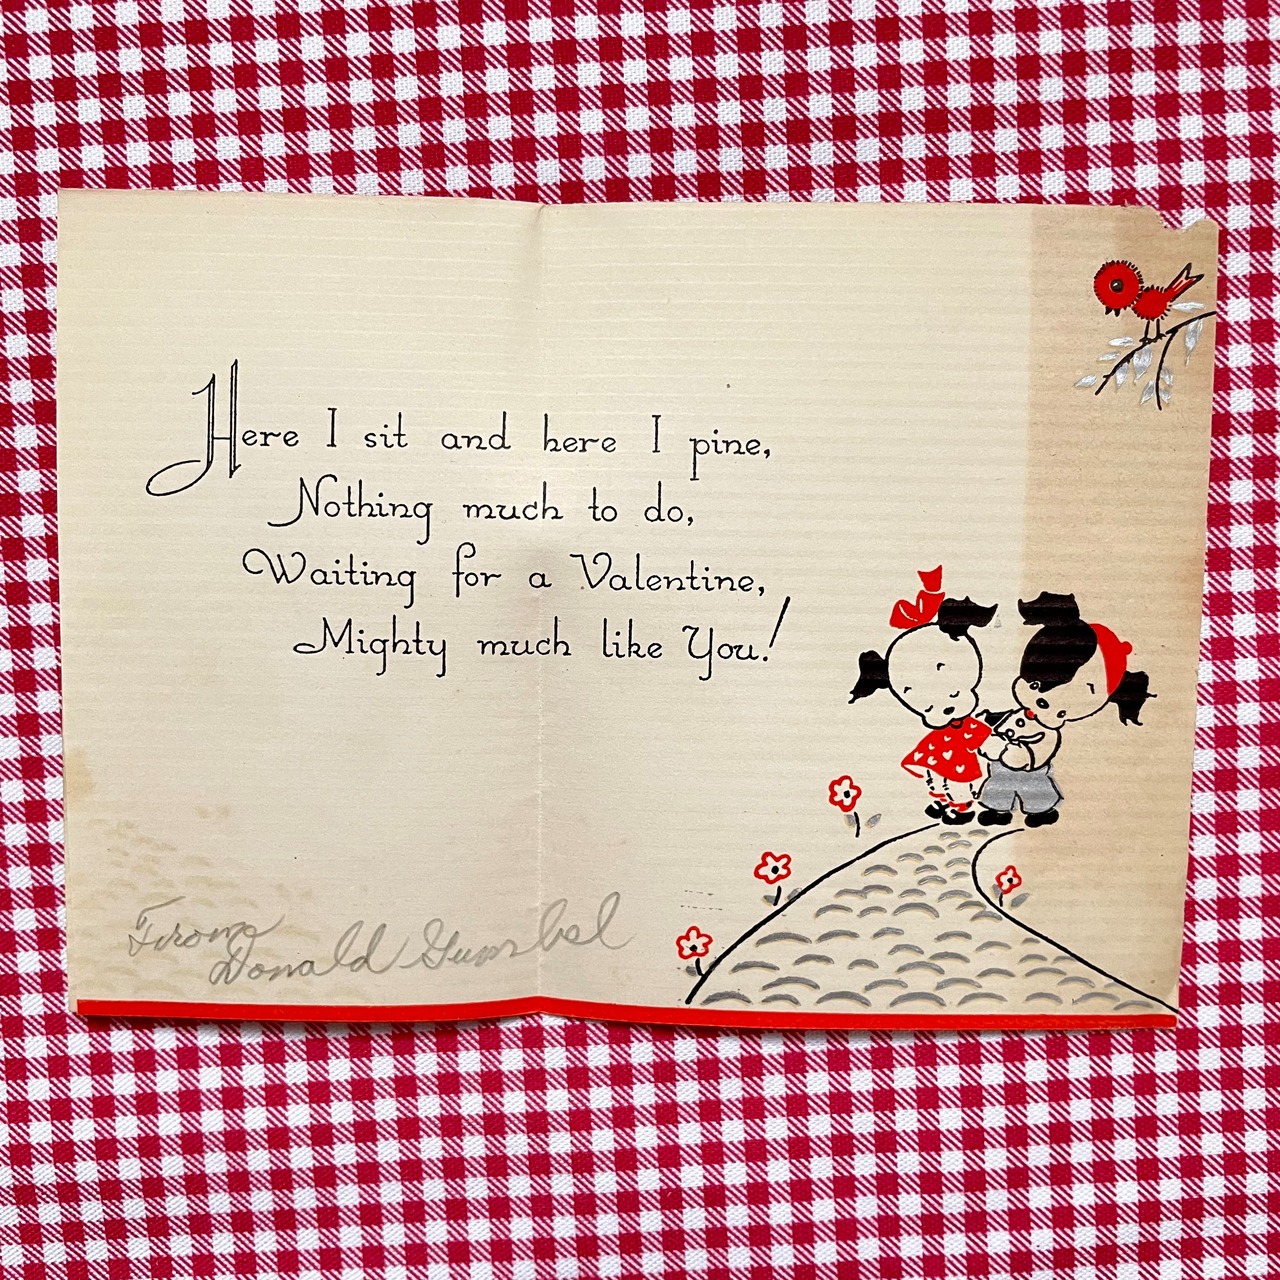 Here I sit and here I pine,
Nothing much to do,
Waiting for a Valentine,
Mighty much like You!
From
Donald Gumbel